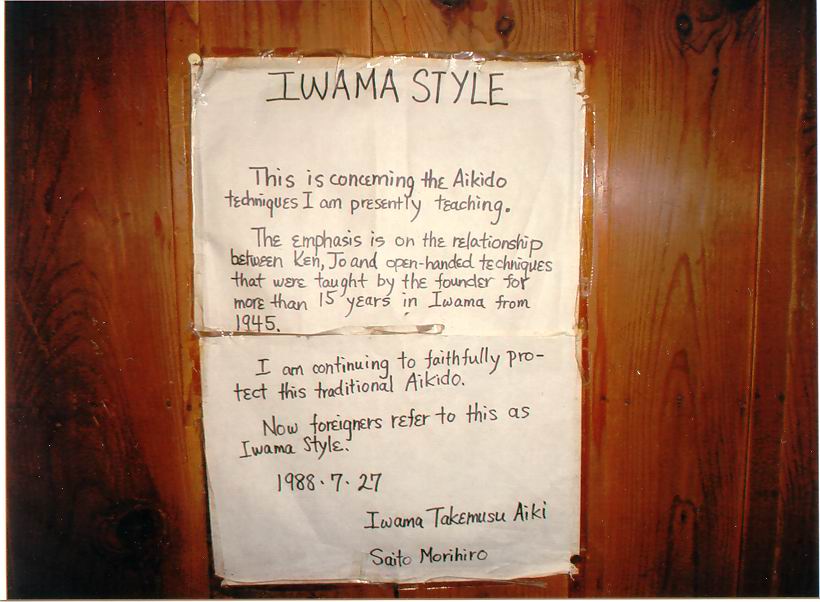 IWAMA STYLE
This is concerning the Aikido
techniques I am presently teaching.
The emphasis is on the relationship
between Ken, Jo and open-handed techniques
that were taught by the founder for
more than 15 years in Iwama from
1945.
I am continuing to faithfully pro-
tect this traditional Aikido.
Now foreigners refer to this as
Iwama Style.
1988・7・27
Iwama Takemusu Aiki
Saito Morihiro